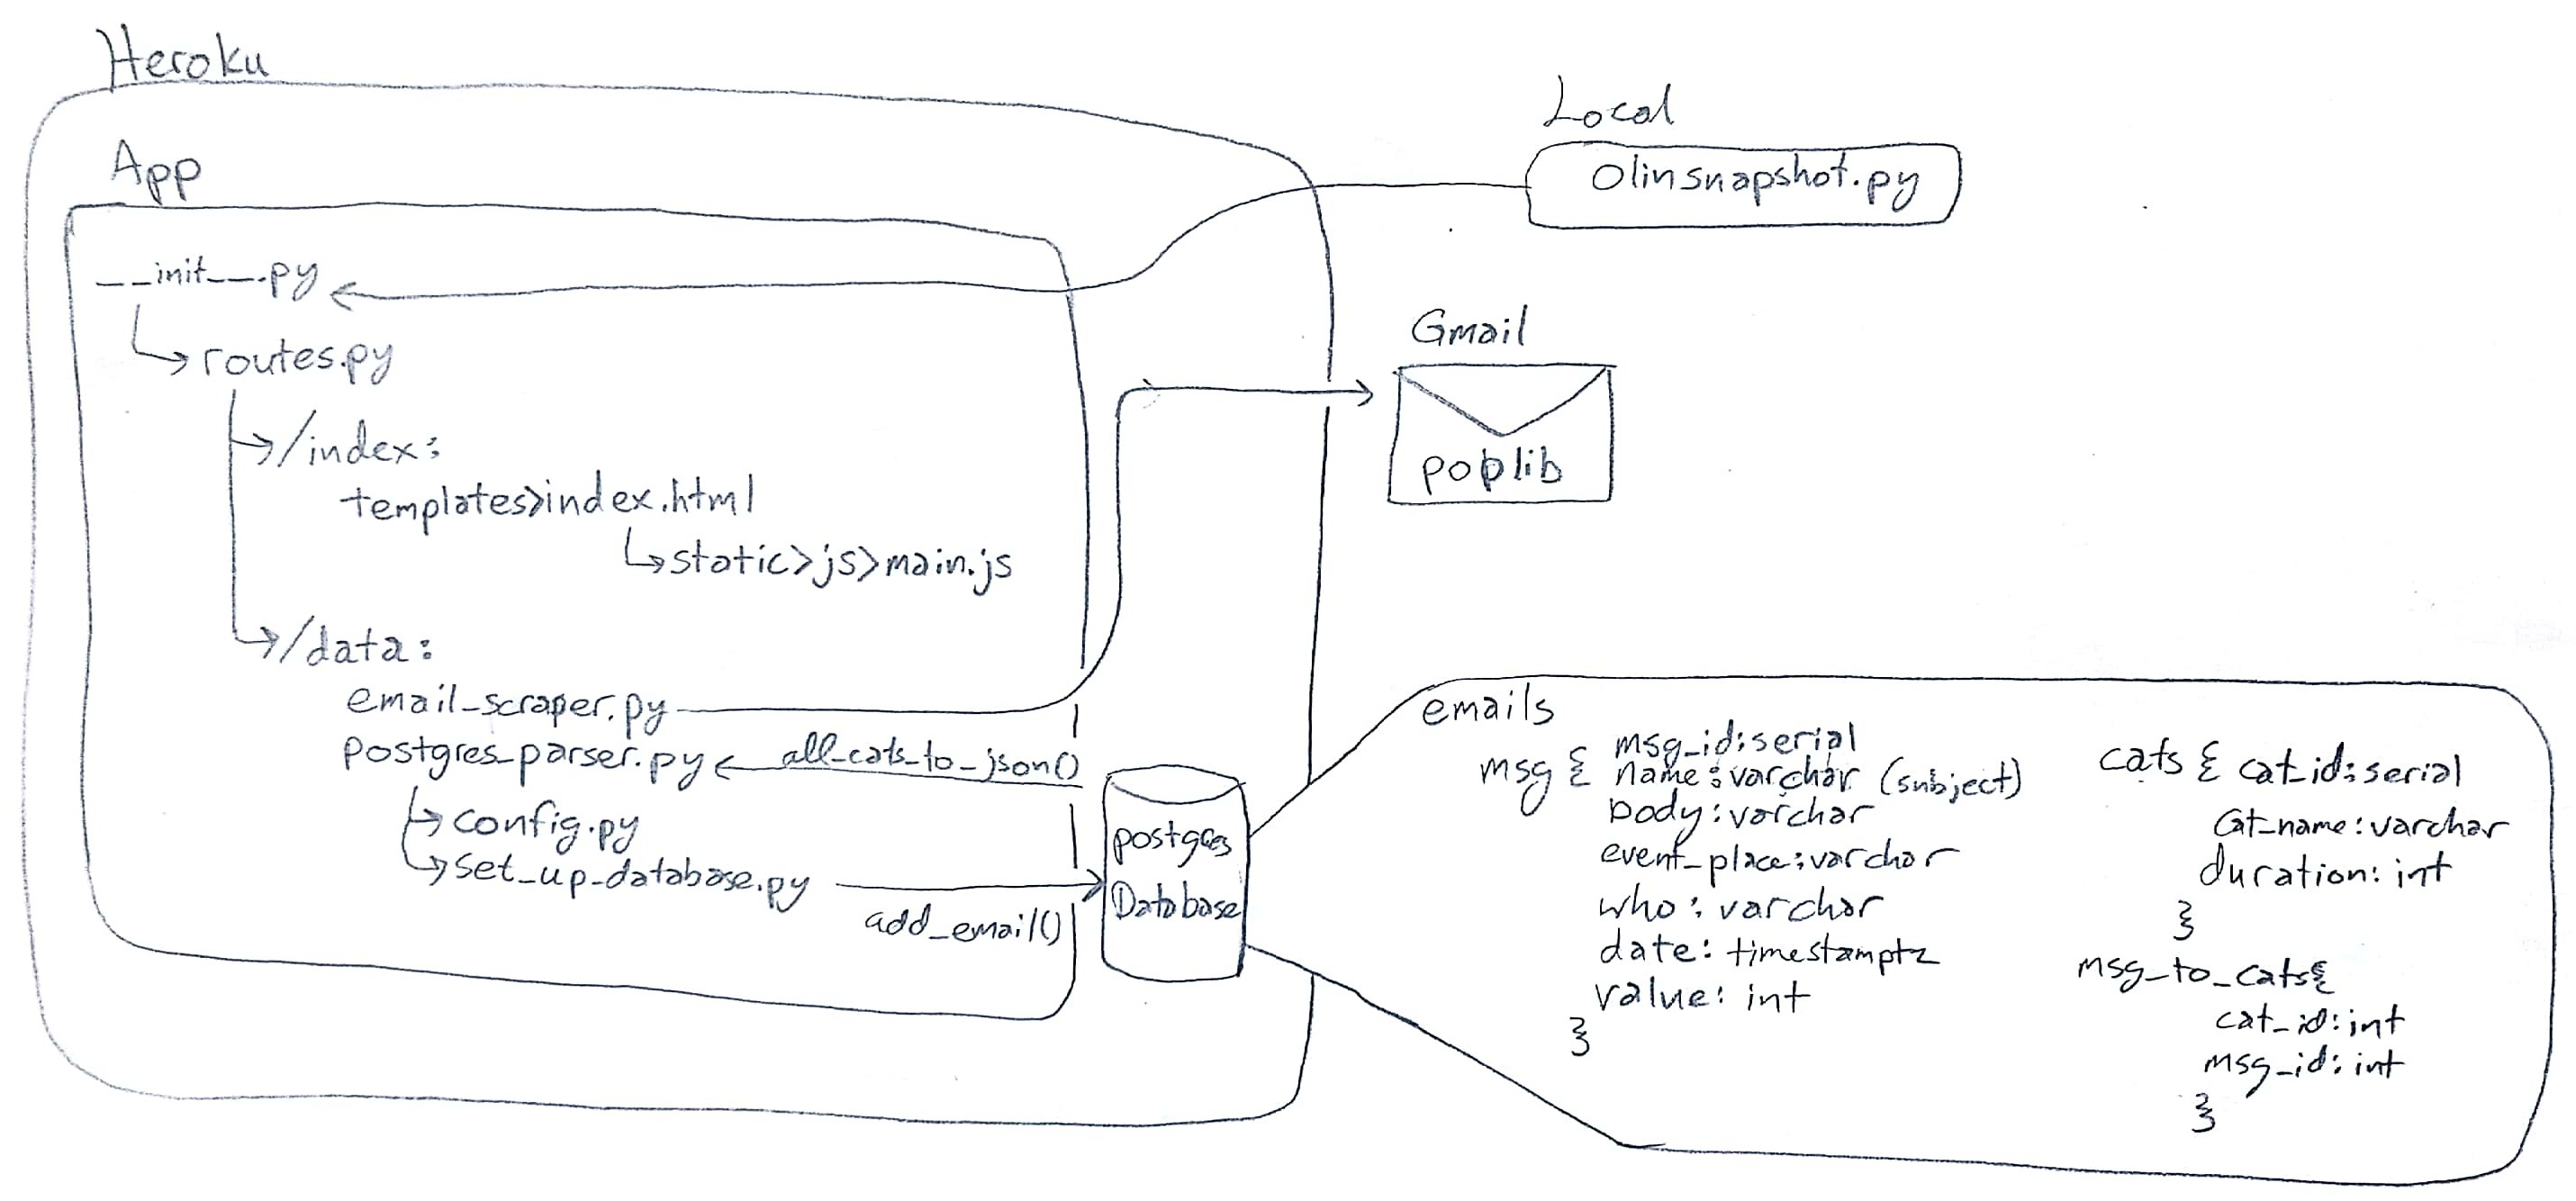 Heroku
App
__init__.py
routes.py
/index:
templates>index.html
static>js>main.js
/data:
email_scraper.py
postgres_parser.py
all_cats_to_json()
config.py
set_up_database.py
add_email()
postgres
Database
Local
olinsnapshot.py
Gmail
poplib
emails
msg {
msg_id:serial
name:varchar (subject)
body:varchar
event_place:varchar
who:varchar
date: timestamptz
value: int
}
cats { cat_id:serial
cat_name:varchar
duration: int
}
msg_to_cats{
cat_id:int
msg_id:int
}